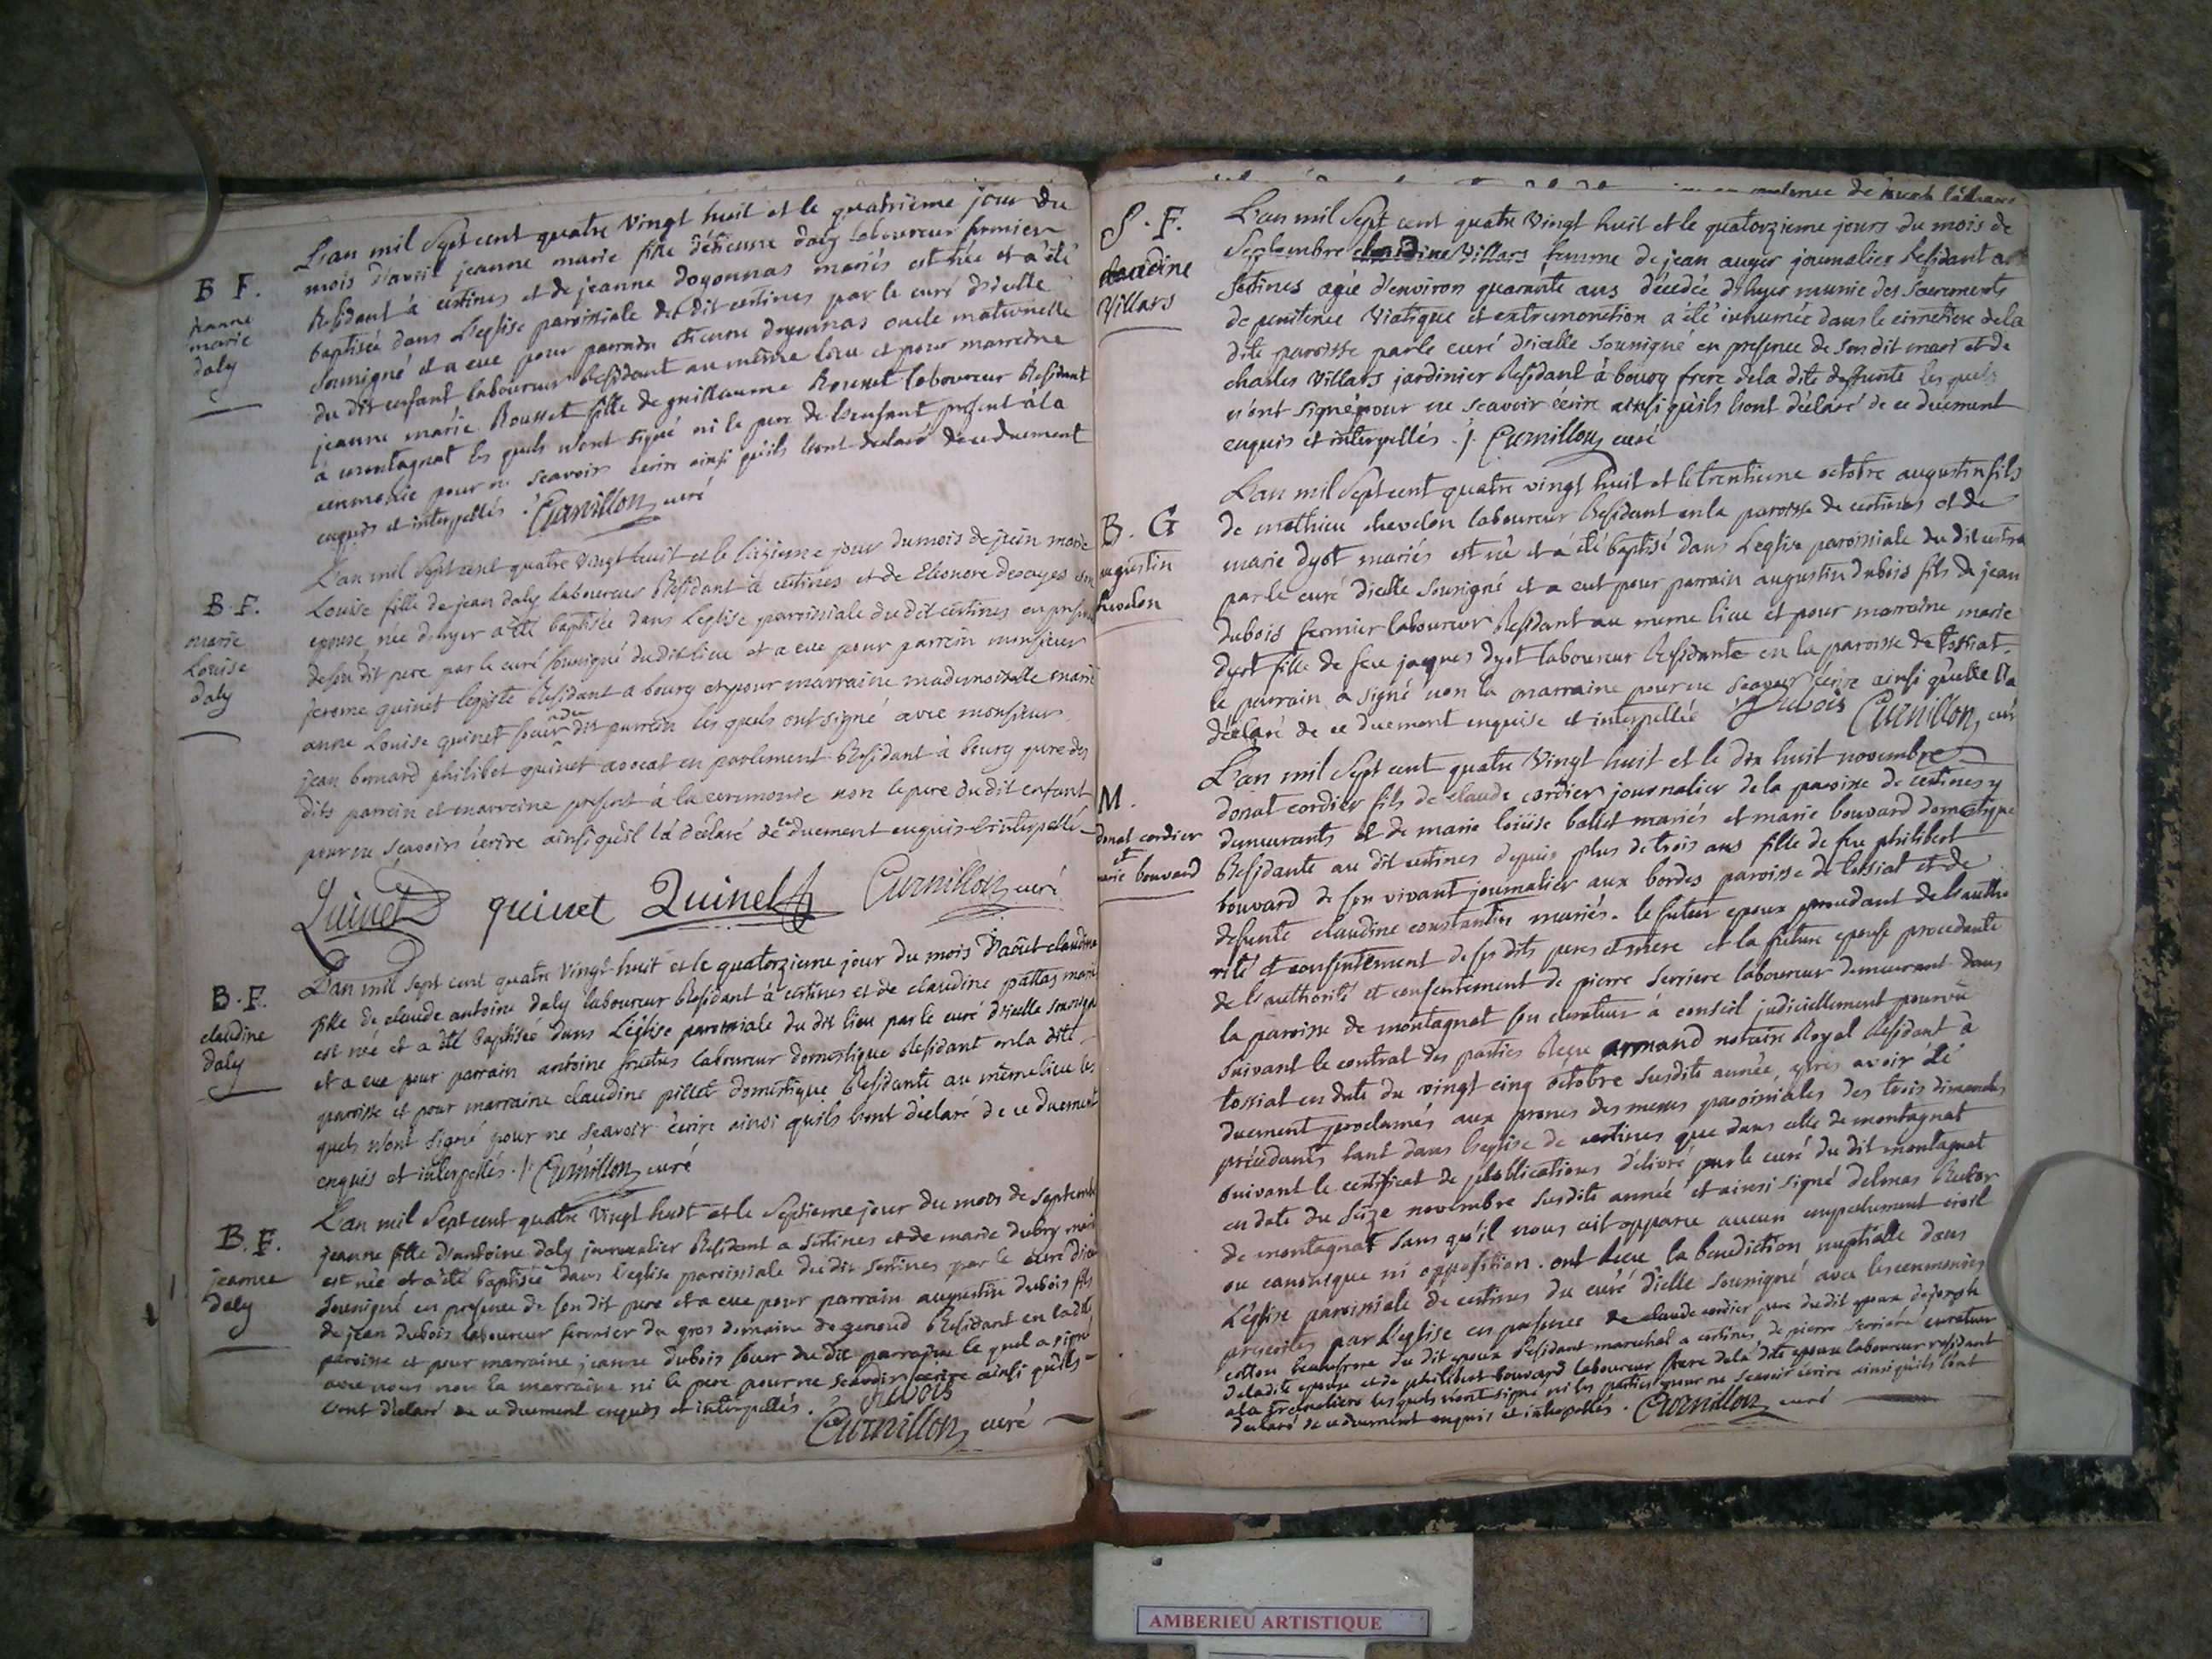 B F.
jeanne
marie
daly
L'an mil Sept cent quatre Vingt huit et le quatrieme jour du
mois d'avril jeanne marie fille d'étienne daly laboureur fermier
Residant à certines et de jeanne doyonnas mariés est née et a été
baptisée dans L'eglise paroissiale du dit certines par le curé d'icelle
Sousigné et a eue pour parrain etienne doyonnas oncle maternelle
du dit enfant laboureur Residant au même lieu et pour marreine
jeanne marie Rousset fille de guillaume Rousset laboureur Residant
à montagnat les quels n'ont signé ni le pere de l'enfant present à la
ceremonie pour ne scavoir écrire ainsi qu'ils l'ont declaré de ce duement
enquis et interpellés . Curnillon curé
B. F.
marie
Louise
daly
L'an mil Sept cent quatre Vingt huit et le seizieme jour du mois de juin marie
Louise fille de jean daly laboureur Residant à certines et de Eleonore desayes son
epouse, née d'hyer a été baptisée dans L'eglise parroissiale du dit certines en presence
de son dit pere par le curé sousigné du dit lieu et a eue pour parrein monsieur
jerome quinet legiste Residant a bourg et pour marraine mademoiselle marie
anne Louise quinet soeur du dit parrein les quels ont signé avec monsieur
jean bernard philibet quinet avocat en parlement Residant à bourg pere des
dits parrein et marreine present à la ceremonie non le pere du dit enfant
pour ne scavoir écrire ainsi qu'il l'a déclaré de ce duement enquis et interpellé
Quinet quinet Quinet Curnillon curé
B. F.
claudine
daly
L'an mil Sept cent quatre Vingt huit et le quatorzieme jour du mois d'aoüt claudine
fille de claude antoine daly laboureur Residant à certines et de claudine pattas mariés
est née et a été baptisée dans L'église paroissiale du dit lieu par le curé d'icelle sousigné
et a eue pour parrain antoine laboureur domestique Residant en la dite
parroisse et pour marraine claudine pillet domestique Residante au même lieu les
quels n'ont signé pour ne scavoir écrire ainsi quils l'ont déclaré de ce duement
enquis et interpellés . Curnillon curé
B. F.
jeanne
daly
L'an mil Sept cent quatre Vingt huit et le Septieme jour du mois de Septembre
jeanne fille d'antoine daly journalier Residant a Sertines et de marie dubry mariés
est née et a été baptisée dans l'eglise paroissiale du dit Sertines par le curé d'icelle
Sousigné en presence de son dit pere et a eue pour parrain augustin dubois fils
de jean dubois laboureur fermier du gros domaine de genoud Residant en la dite
paroisse et pour marraine jeanne dubois soeur du dit parrain le quel a signé
avec nous non la marraine ni le pere pour ne scavoir écrire ainsi quils
l'ont déclaré de ce duement enquis et interpellés . Dubois
Curnillon curé
S. F.
claudine
Villars
L'an mil Sept cent quatre Vingt huit et le quatorzieme jours du mois de
Septembre claudine Villars femme de jean auger journalier Residant a
Sertines agée d'environ quarante ans décedée d'hyer munie des Sacrements
de penitence Viatique et extremonction a été inhumée dans le cimetiere dela
dite paroisse par le curé d'icelle Sousigné en presence de Son dit mari et de
charles Villars jardinier Residant à bourg frere dela dite deffunte les quels
n'ont signé pour ne scavoir écrire ainsi qu'ils l'ont déclaré de ce duement
enquis et interpellés . Curnillon curé
B. G
augustin
chevelon
L'an mil Sept cent quatre vingt huit et le trentieme octobre augustin fils
de mathieu chevelon laboureur Residant en la paroisse de certines et de
marie dyot mariés est né et a été baptisé dans L'eglise paroissiale du dit certines
par le curé d'icelle Sousigné et a eut pour parrain augustin dubois fils de jean
dubois fermier laboureur Residant au meme lieu et pour marraine marie
dyot fille de feu jaques dyot laboureur Residante en la paroisse de tossiat.
le parrain a signé non la marraine pour ne scavoir écrire ainsi qu'elle l'a
déclaré de ce duement enquise et interpellée Dubois Curnillon, curé
M.
donat cordier
et
marie bouvard
L'an mil Sept cent quatre Vingt huit et le dix huit novembre
donat cordier fils de claude cordier journalier de la paroisse de certines y
demeurants et de marie loüise ballet mariés et marie bouvard domestique
Residante au dit certines depuis plus de trois ans fille de feu philibert
bouvard de son vivant journalier aux bordes paroisse de tossiat et de
defunte claudine constantin mariés. le futur epoux procedant de l'autho
rité et consentement de ses dits peres et mere et la future epouse procedante
de l'authorité et consentement de pierre Serriere laboureur demeurant dans
la paroisse de montagnat son curateur à conseil judiciellement pourvû
Suivant le contrat des parties Reçu armand notaire Royal Residant à
tossiat en date du vingt cinq octobre Susdite année, après avoir été
duement proclamés aux prones des messes paroissiales des trois dimanches
précédants tant dans l'eglise de certines que dans celle de montagnat
suivant le certificat de publications délivré par le curé du dit montagnat
en date du Seize novembre Susdite année et ainsi signé delmas Recteur
de montagnat sans qu'il nous ait apparu aucun empechement civil
ou canonique ni opposition. ont Recu la benediction nuptialle dans
L'église paroissiale de certines du curé d'icelle Sousigné avec les ceremonies
prescrites par L'eglise en presence de claude cordier pere du dit epoux de joseph
cotton beaufrere du dit epoux Residant marechal a certines, de pierre Serriere curateur
de la dite epouse et de philibert bouvard laboureur frere dela dite epouse laboureur residant
a la les quels n'ont signé ni les parties pour ne scavoir écrire ainsi quils l'ont
déclaré de ce duement enquis et interpellés . Curnillon curé
AMBERIEU ARTISTIQUE